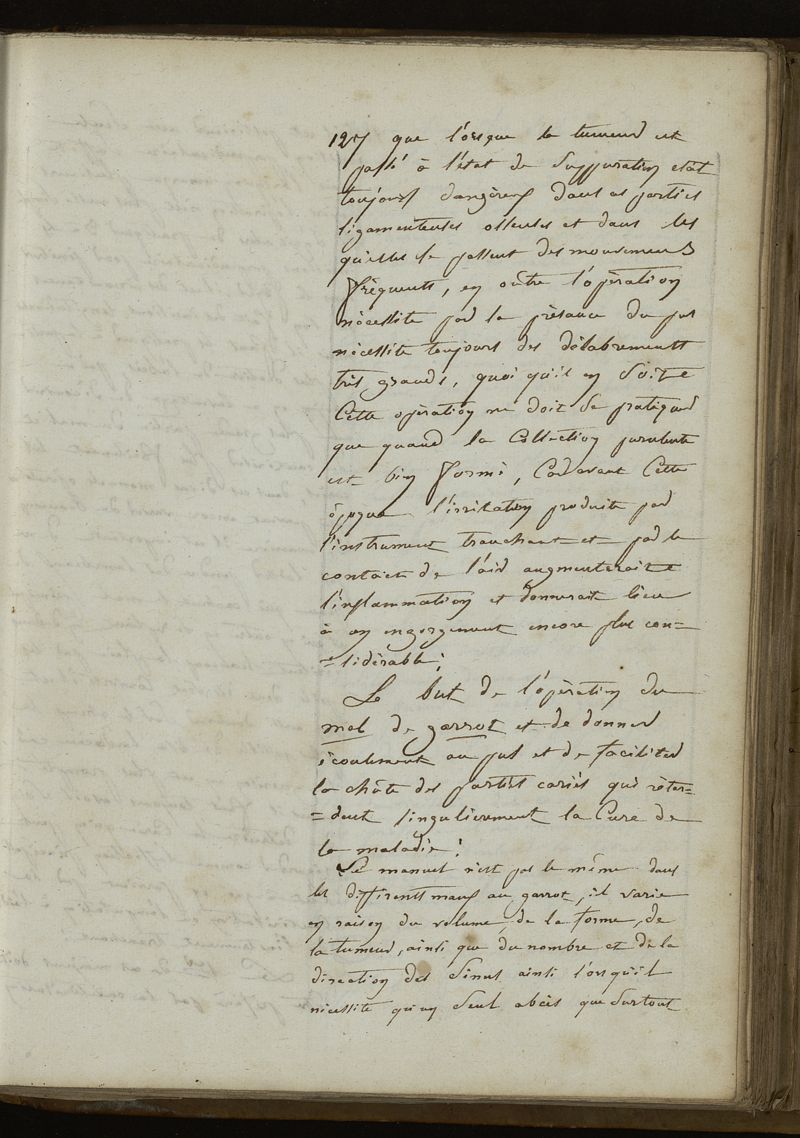 127 que lorsque la tumeur est
passé à l'état de suppuration etat
toujours dangèreux dans ces parties
ligamenteuses osseuses et dans les
quelles se passent des mouvemens
frèquents, en oûtre l'opèration
nècessite par la prèsence du pus
nècessite toujours des délabrements
très grands, quoi qu'il en soit
Cette opèration ne doit se pratiquer
que quand la Collection purulente
est bien formé, Car avant Cette
époque l'irritation produite par
l'instrument tranchant et par le
contact de l'air augmenterait
l'inflammation et donnerait lieu
à un engorgement encore plus con=
=sidèrable;
Le but de l'opèration du
mal de garrot et de donner
écoulement au pus et de faciliter
la chûte des parties cariés qui rètar=
=dent singulierement la Cure de
la maladie;
Le manuel n'est pas le même dans
les differents maux au garrot, il varie
en raison du volume, de la forme, de
la tumeur, ainsi que du nombre et de la
direction des Sinus ainsi lorsqu'il
nècessite qu'un seul abcès que surtout